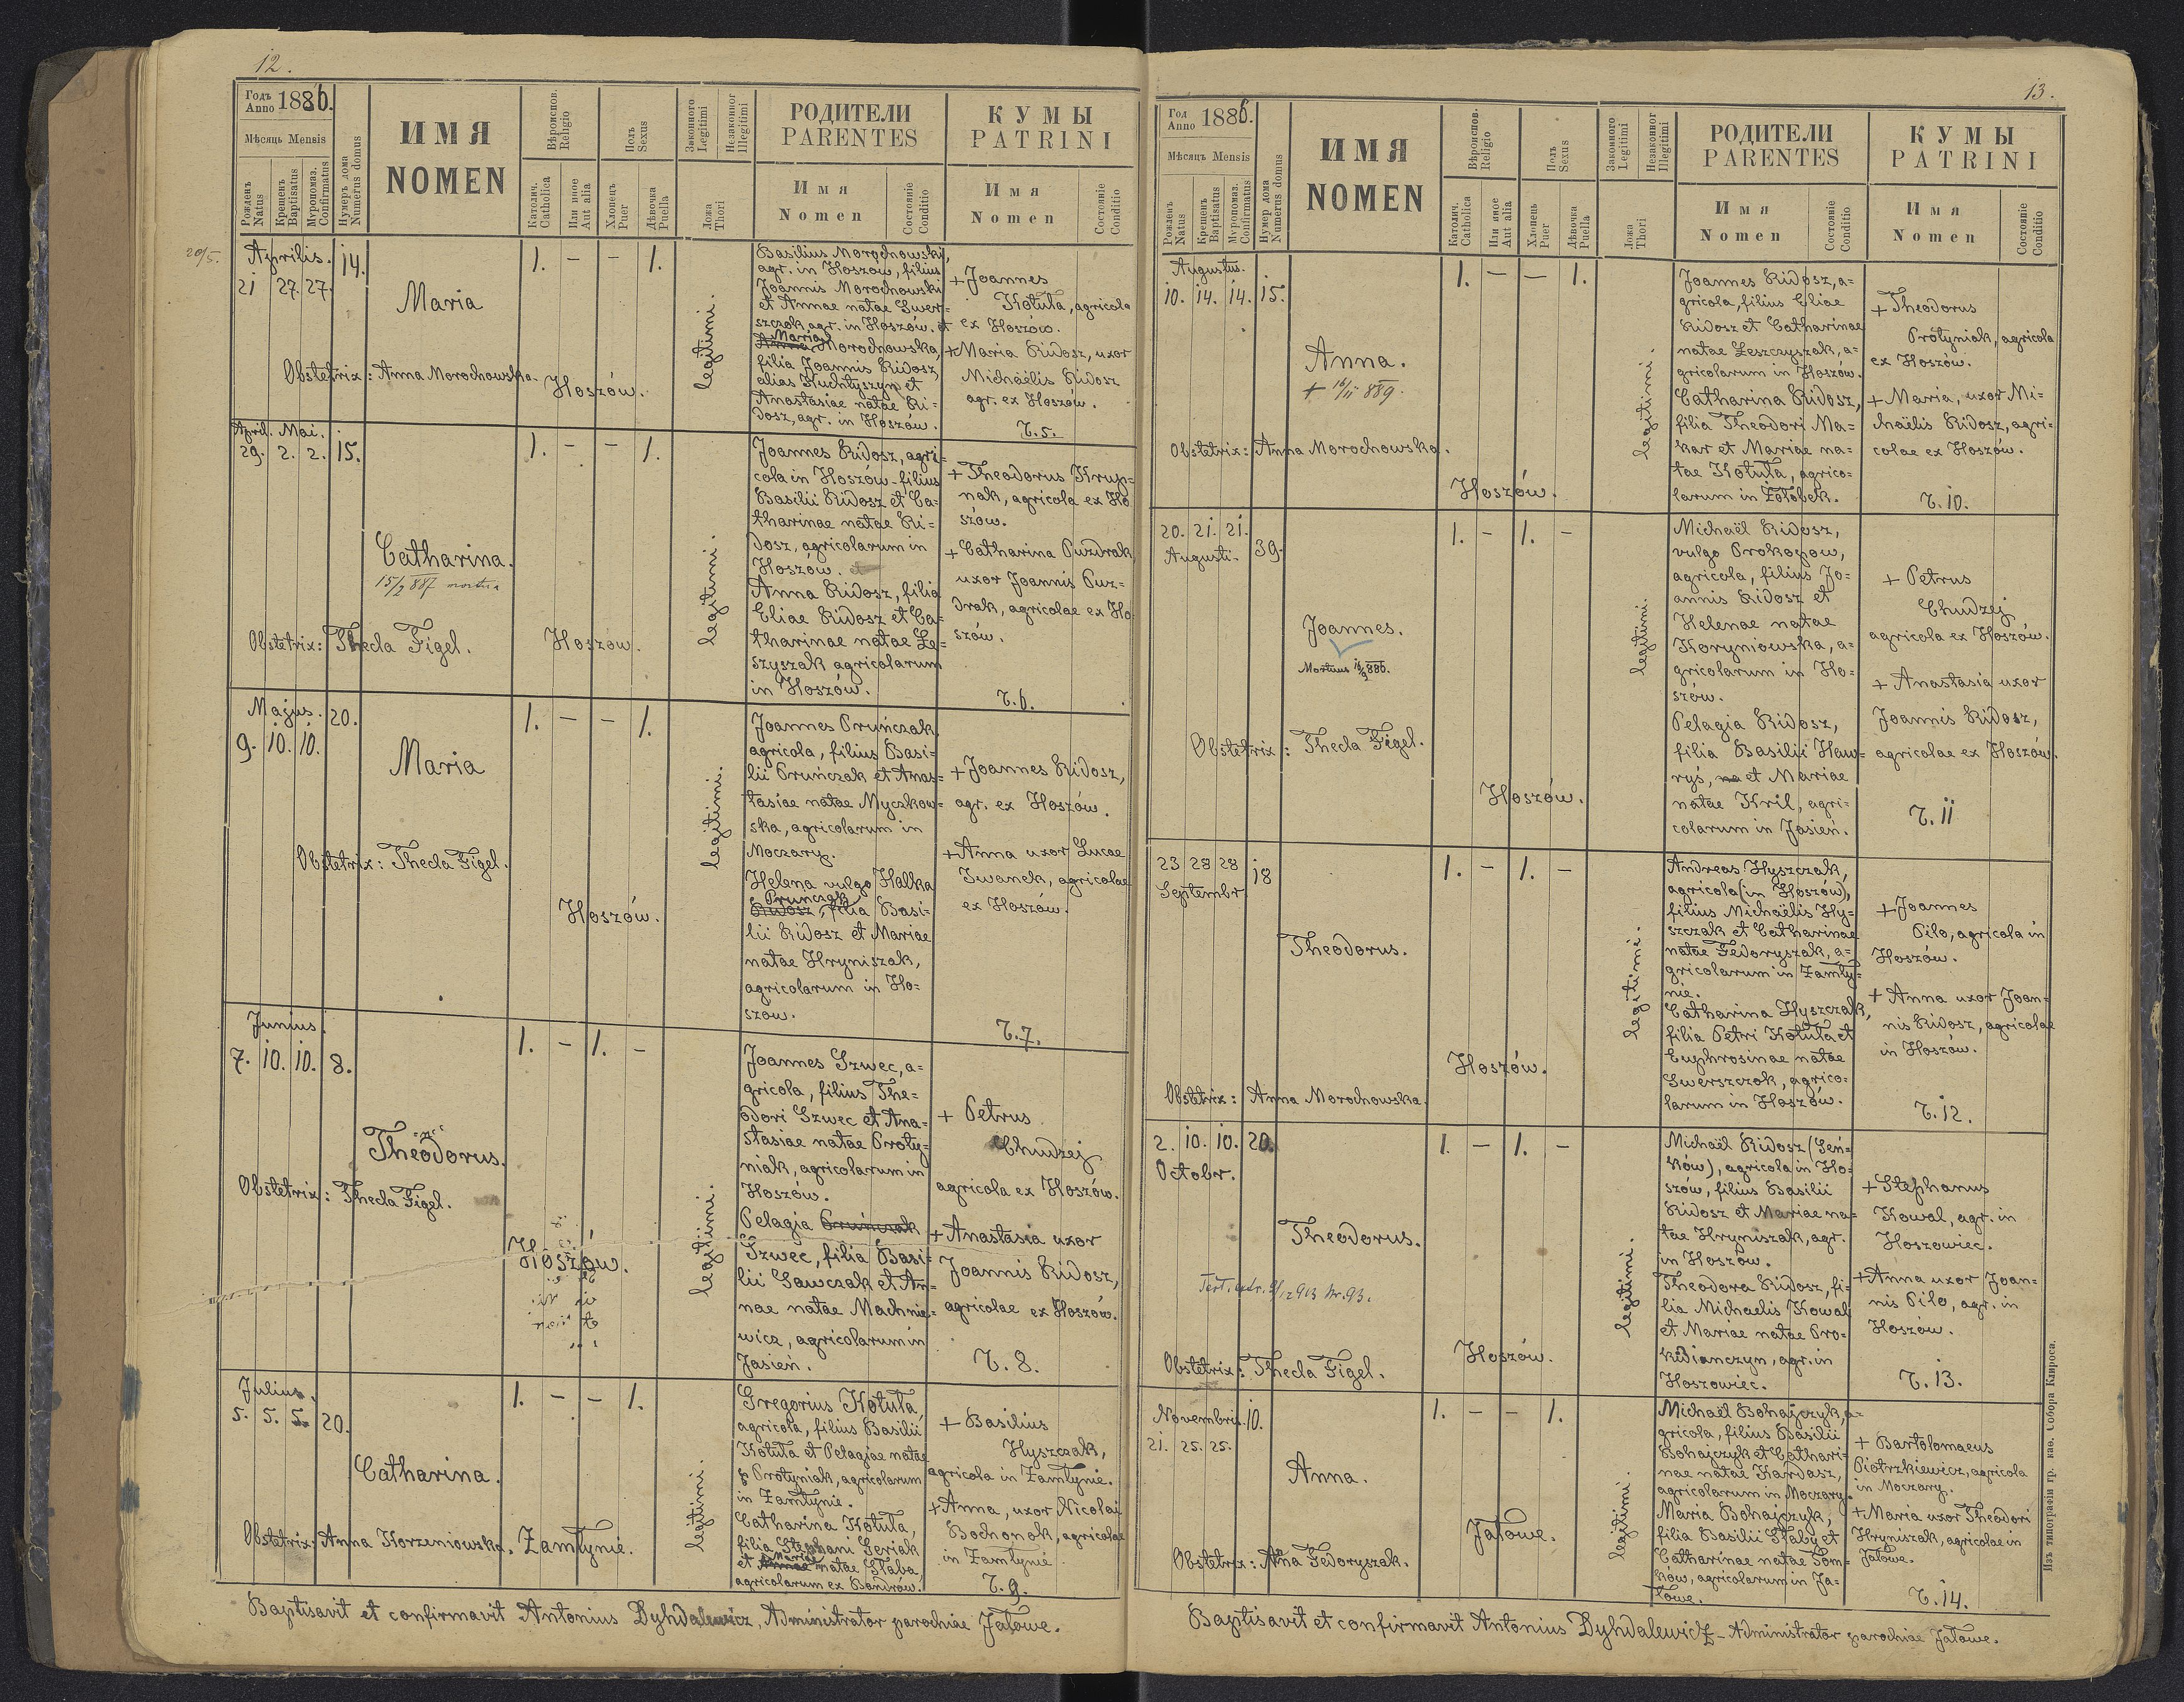 12.
Годъ
Anno 1886.
Мѣсяць Mensis
Рожденъ
Natus
Крещенъ
Baptisatus
Мѵропомаз.
Confirmatus
Нумеръ дома
Numerus domus
ИМЯ
NOMEN
Вѣроиспов.
Religio
Католич.
Catholica
Или иное
Aut alia
Полъ
Sexus
Хлопецъ
Puer
Дѣвочка
Puella
Законного
Legitimi
Незаконног
Illegitimi
Ложа
Thori
РОДИТЕЛИ
PARENTES
Имя
Nomen
Состояніе
Conditio
КУМЫ
PATRINI
Имя
Nomen
Состояніе
Conditio
20/5.
Aprilis. 14.
21 27. 27.
Maria
Obstetrix: Anna Morochowska.
Hoszów.
1. – – 1.
legitimi.
Basilius Morochowski,
agr. in Hoszów, filius
Joannis Morochowski
et Annae natae Swer-
szczok, agr. in Hoszów. et
Maria
Anna Morochowska,
filia Joannis Ridosz,
alias Kuchtyszyn et
Anastasiae natae Ri-
dosz, agr. in Hoszów.
+ Joannes
Kotuła, agricola
ex Hoszów.
+ Maria Ridosz, uxor
Michaëlis Ridosz
agr. ex Hoszów.
T. 5.
April. Mai.
29. 2. 2. 15.
Catharina.
15/2 887 mortua
Obstetrix: Thecla Figel.
Hoszów.
1. – – 1.
legitimi.
Joannes Ridosz, agri-
cola in Hoszów – filius
Basilii Ridosz et Ca-
tharinae natae Ri-
dosz, agricolarum in
Hoszów. et
Anna Ridosz, filia
Eliae Ridosz et Ca-
tharinae natae Le-
szyszak agricolarum
in Hoszów.
+ Theodorus Krup-
nak, agricola ex Ho
szów.
+ Catharina Puzdrak
uxor Joannis Puz-
drak, agricolae ex Ho-
szów.
T. 6.
Majus. 20.
9. 10. 10.
Maria
Obstetrix: Thecla Figel.
Hoszów.
1. – – 1.
legitimi.
Joannes Pruńczak
agricola, filius Basi-
lii Pruńczak et Anas-
tasiae natae Myczkow-
ska, agricolarum in
Moczary.
Helena vulgo Halka
Pruńczak
Ridosz, filia Basi-
lii Ridosz et Mariae
natae Hryniszak,
agricolarum in Ho-
szów.
+ Joannes Ridosz,
agr. ex Hoszów.
+ Anna uxor Lucae
Iwanek, agricolae
ex Hoszów.
T. 7.
Junius.
7. 10. 10. 8.
Theodorus.
Obstetrix: Thecla Figel.
Hoszów.
1. – 1. –
legitimi.
Joannes Szwec, a-
gricola, filius The-
odori Szwec et Ana-
stasiae natae Proty-
niak, agricolarum in
Hoszów.
Pelagia Pruńczak
Szwec, filia Basi-
lii Sawczak et An-
nae natae Machnie-
wicz, agricolarum in
Jasień.
+ Petrus
Chudzej
agricola ex Hoszów.
+ Anastasia uxor
Joannis Ridosz,
agricolae ex Hoszów.
T. 8.
Julius.
5. 5. 5. 20.
Catharina.
Obstetrix: Anna Korzeniowska. Zamłynie.
1. – – 1.
legitimi.
Gregorius Kotuła,
agricola, filius Basilii
Kotuła et Pelagiae natae
Protyniak, agricolarum
in Zamłynie.
Catharina Kotuła,
filia Stephani Seriak
Mariae
et Annae natae Słaba,
agricolarum ex Bandrów.
+ Basilius
Hyszczak,
agricola in Zamłynie.
+ Anna, uxor Nicolai
Bochonok, agricolae
in Zamłynie.
T. 9.
Baptisavit et confirmavit Antonius Dyhdalewicz, Administrator parochiae Jałowe.
13.
Год
Anno 1886.
Мѣсяць Mensis
Рожденъ
Natus
Крещенъ
Baptisatus
Мѵропомаз.
Confirmatus
Нумер дома
Numerus domus
ИМЯ
NOMEN
Вѣроиспов.
Religio
Католич.
Catholica
Или иное
Aut alia
Полъ
Sexus
Хлопець
Puer
Дѣвочка
Puella
Законного
Legitimi
Незаконног
Illegitimi
Ложа
Thori
РОДИТЕЛИ
PARENTES
Имя
Nomen
Состояніе
Conditio
КУМЫ
PATRINI
Имя
Nomen
Состояніе
Conditio
Augustus.
10. 14. 14. 15.
Anna.
+ 16/II 889.
Obstetrix: Anna Morochowska.
Hoszów.
1. – – 1.
legitimi.
Joannes Ridosz, a-
gricola, filius Eliae
Ridosz et Catharinae
natae Leszczyszak, a-
gricolarum in Hoszów.
Catharina Ridosz,
filia Theodori Ma-
kar et Mariae na-
tae Kotuła, agrico-
larum in Żołobek.
+ Theodorus
Protyniak, agricola
ex Hoszów.
+ Maria, uxor Mi-
chaëlis Ridosz, agri-
colae ex Hoszów.
T. 10.
20. 21. 21. 39.
Augusti.
Joannes.
Mortuus 16/9 886.
Obstetrix: Thecla Figel.
Hoszów.
1. – 1. –
legitimi.
Michaël Ridosz,
vulgo Prokopow,
agricola, filius Jo-
annis Ridosz et
Helenae natae
Koryniowska, a-
gricolarum in Ho-
szów.
Pelagia Ridosz,
filia Basilii Haw-
ryś, na et Mariae
natae Kril, agri-
colarum in Jasień.
+ Petrus
Chudzej
agricola ex Hoszów.
+ Anastasia uxor
Joannis Ridosz,
agricolae ex Hoszów.
T. 11
23 28 28 18
Septembr.
Theodorus.
Obstetrix: Anna Morochowska.
Hoszów.
1. – 1. –
legitimi.
Andreas Hyszczak,
agricola (in Hoszów),
filius Michaëlis Hy-
szczak et Catharinae
natae Fedoryszak, a-
gricolarum in Zamły-
nie.
Catharina Hyszczak,
filia Petri Kotuła et
Euphrosinae natae
Swerszczok, agrico-
larum in Hoszów.
+ Joannes
Pilo, agricola in
Hoszów.
+ Anna uxor Joan-
nis Ridosz, agricolae
in Hoszów.
T. 12.
2. 10. 10. 20.
Octobr.
Theodorus.
Test. extr. 9/12 913 Nr. 93.
Obstetrix: Thecla Figel.
Hoszów.
1. – 1. –
legitimi.
Michaël Ridosz (Sen-
ków), agricola in Ho-
szów, filius Basilii
Ridosz et Mariae na-
tae Hryniszak, agr.
in Hoszów.
Theodora Ridosz, fi-
lia Michaelis Kowal
et Mariae natae Pro-
kidianczyn, agr. in
Hoszowiec.
+ Stephanus
Kowal, agr. in
Hoszowiec.
+ Anna uxor Joan-
nis Pilo, agr. in
Hoszów.
T. 13.
Novembris. 10.
21. 25. 25.
Anna.
Obstetrix: Anna Fedoryszak.
Jałowe.
1. – – 1.
legitimi.
Michaël Bohajczyk, a-
gricola, filius Basilii
Bohajczyk et Cathari-
nae natae Hardasz,
agricolarum in Moczary.
Maria Bohajczyk,
filia Basilii Słaby et
Catharinae natae Tom-
ków, agricolarum in Ja-
łowe.
+ Bartolomaeus
Piotrzkiewicz, agricola
in Moczary.
+ Maria uxor Theodori
Hryniszak, agricolae in
Jałowe.
T. 14.
Baptisavit et confirmavit Antonius Dyhdalewicz – Administrator parochiae Jałowe.
Изъ типографіи гр. каѳ. Собора Клироса.